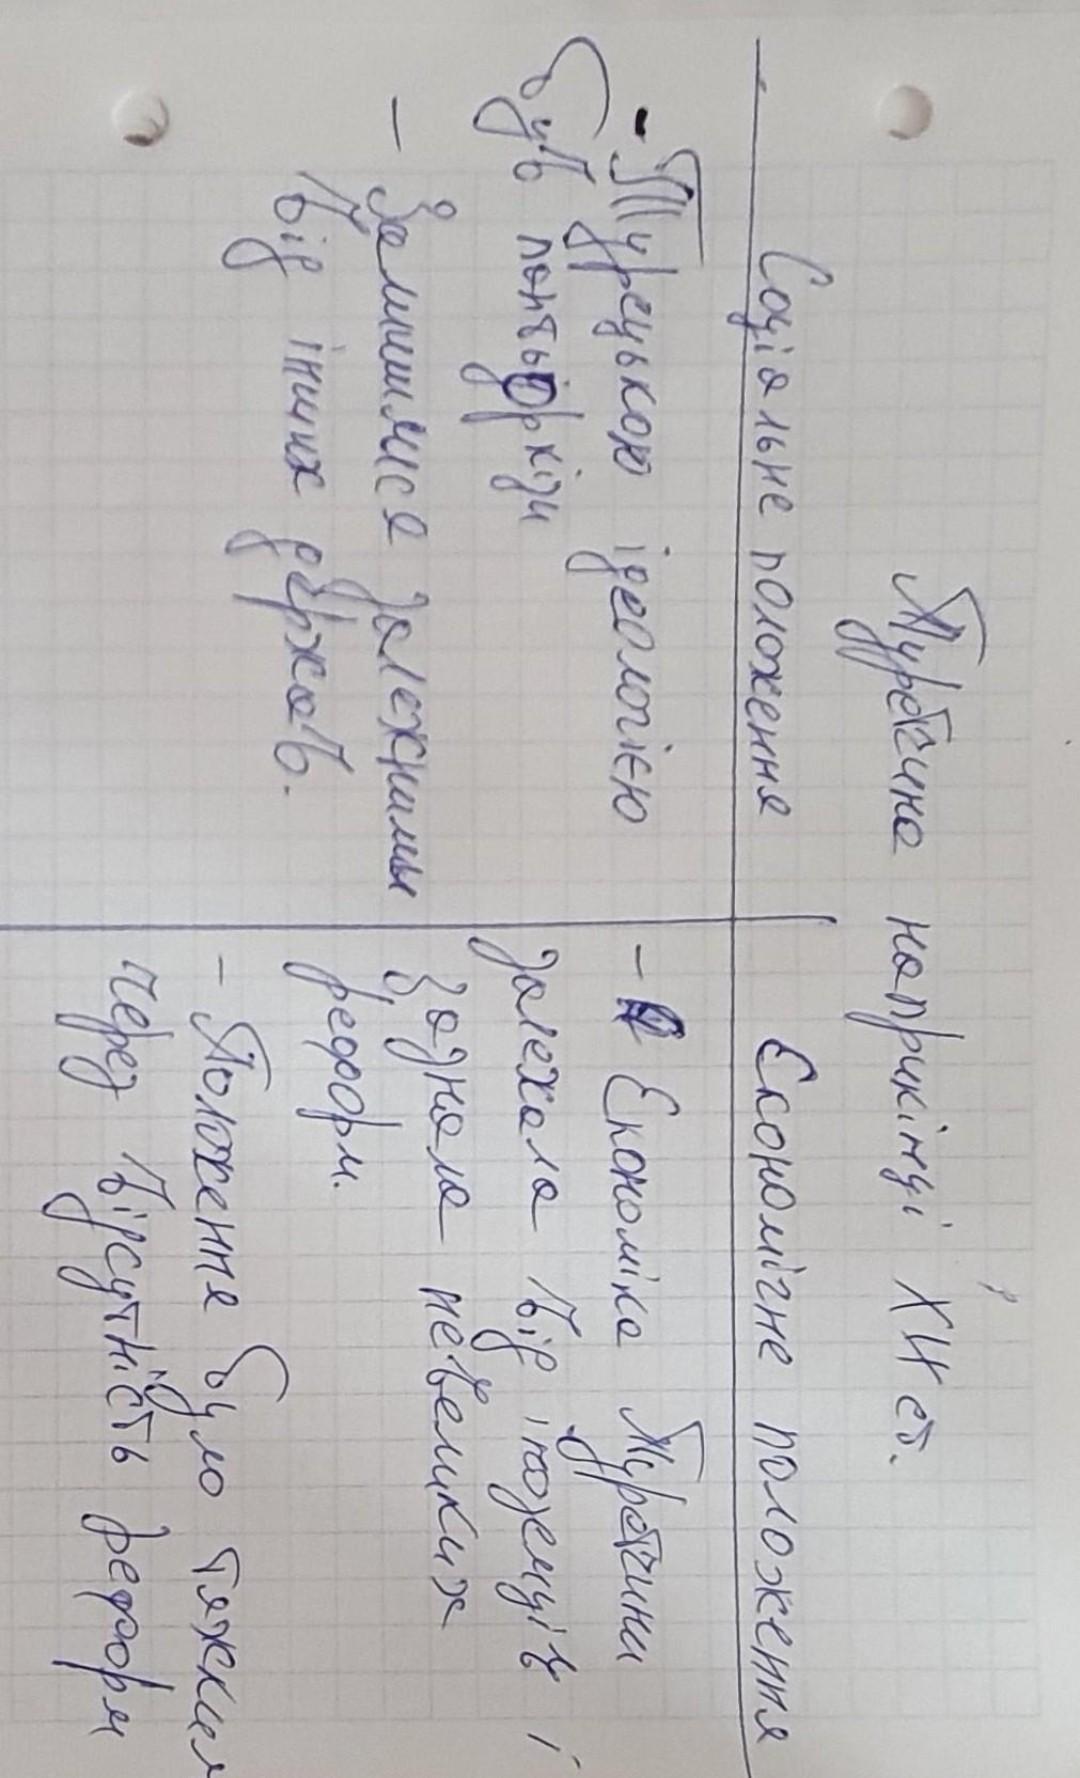 Туреччина наприкінці ХІХ ст.
Соціальне положення
- Турецькою ідеологією
був пантюркізм
- Залишилися залежними
від інших держав.
Економічне положення
- Економіка Туреччини
залежала від іноземців і
зазнала невеликих
реформ.
- Положення було тяжким
через відсутність реформ